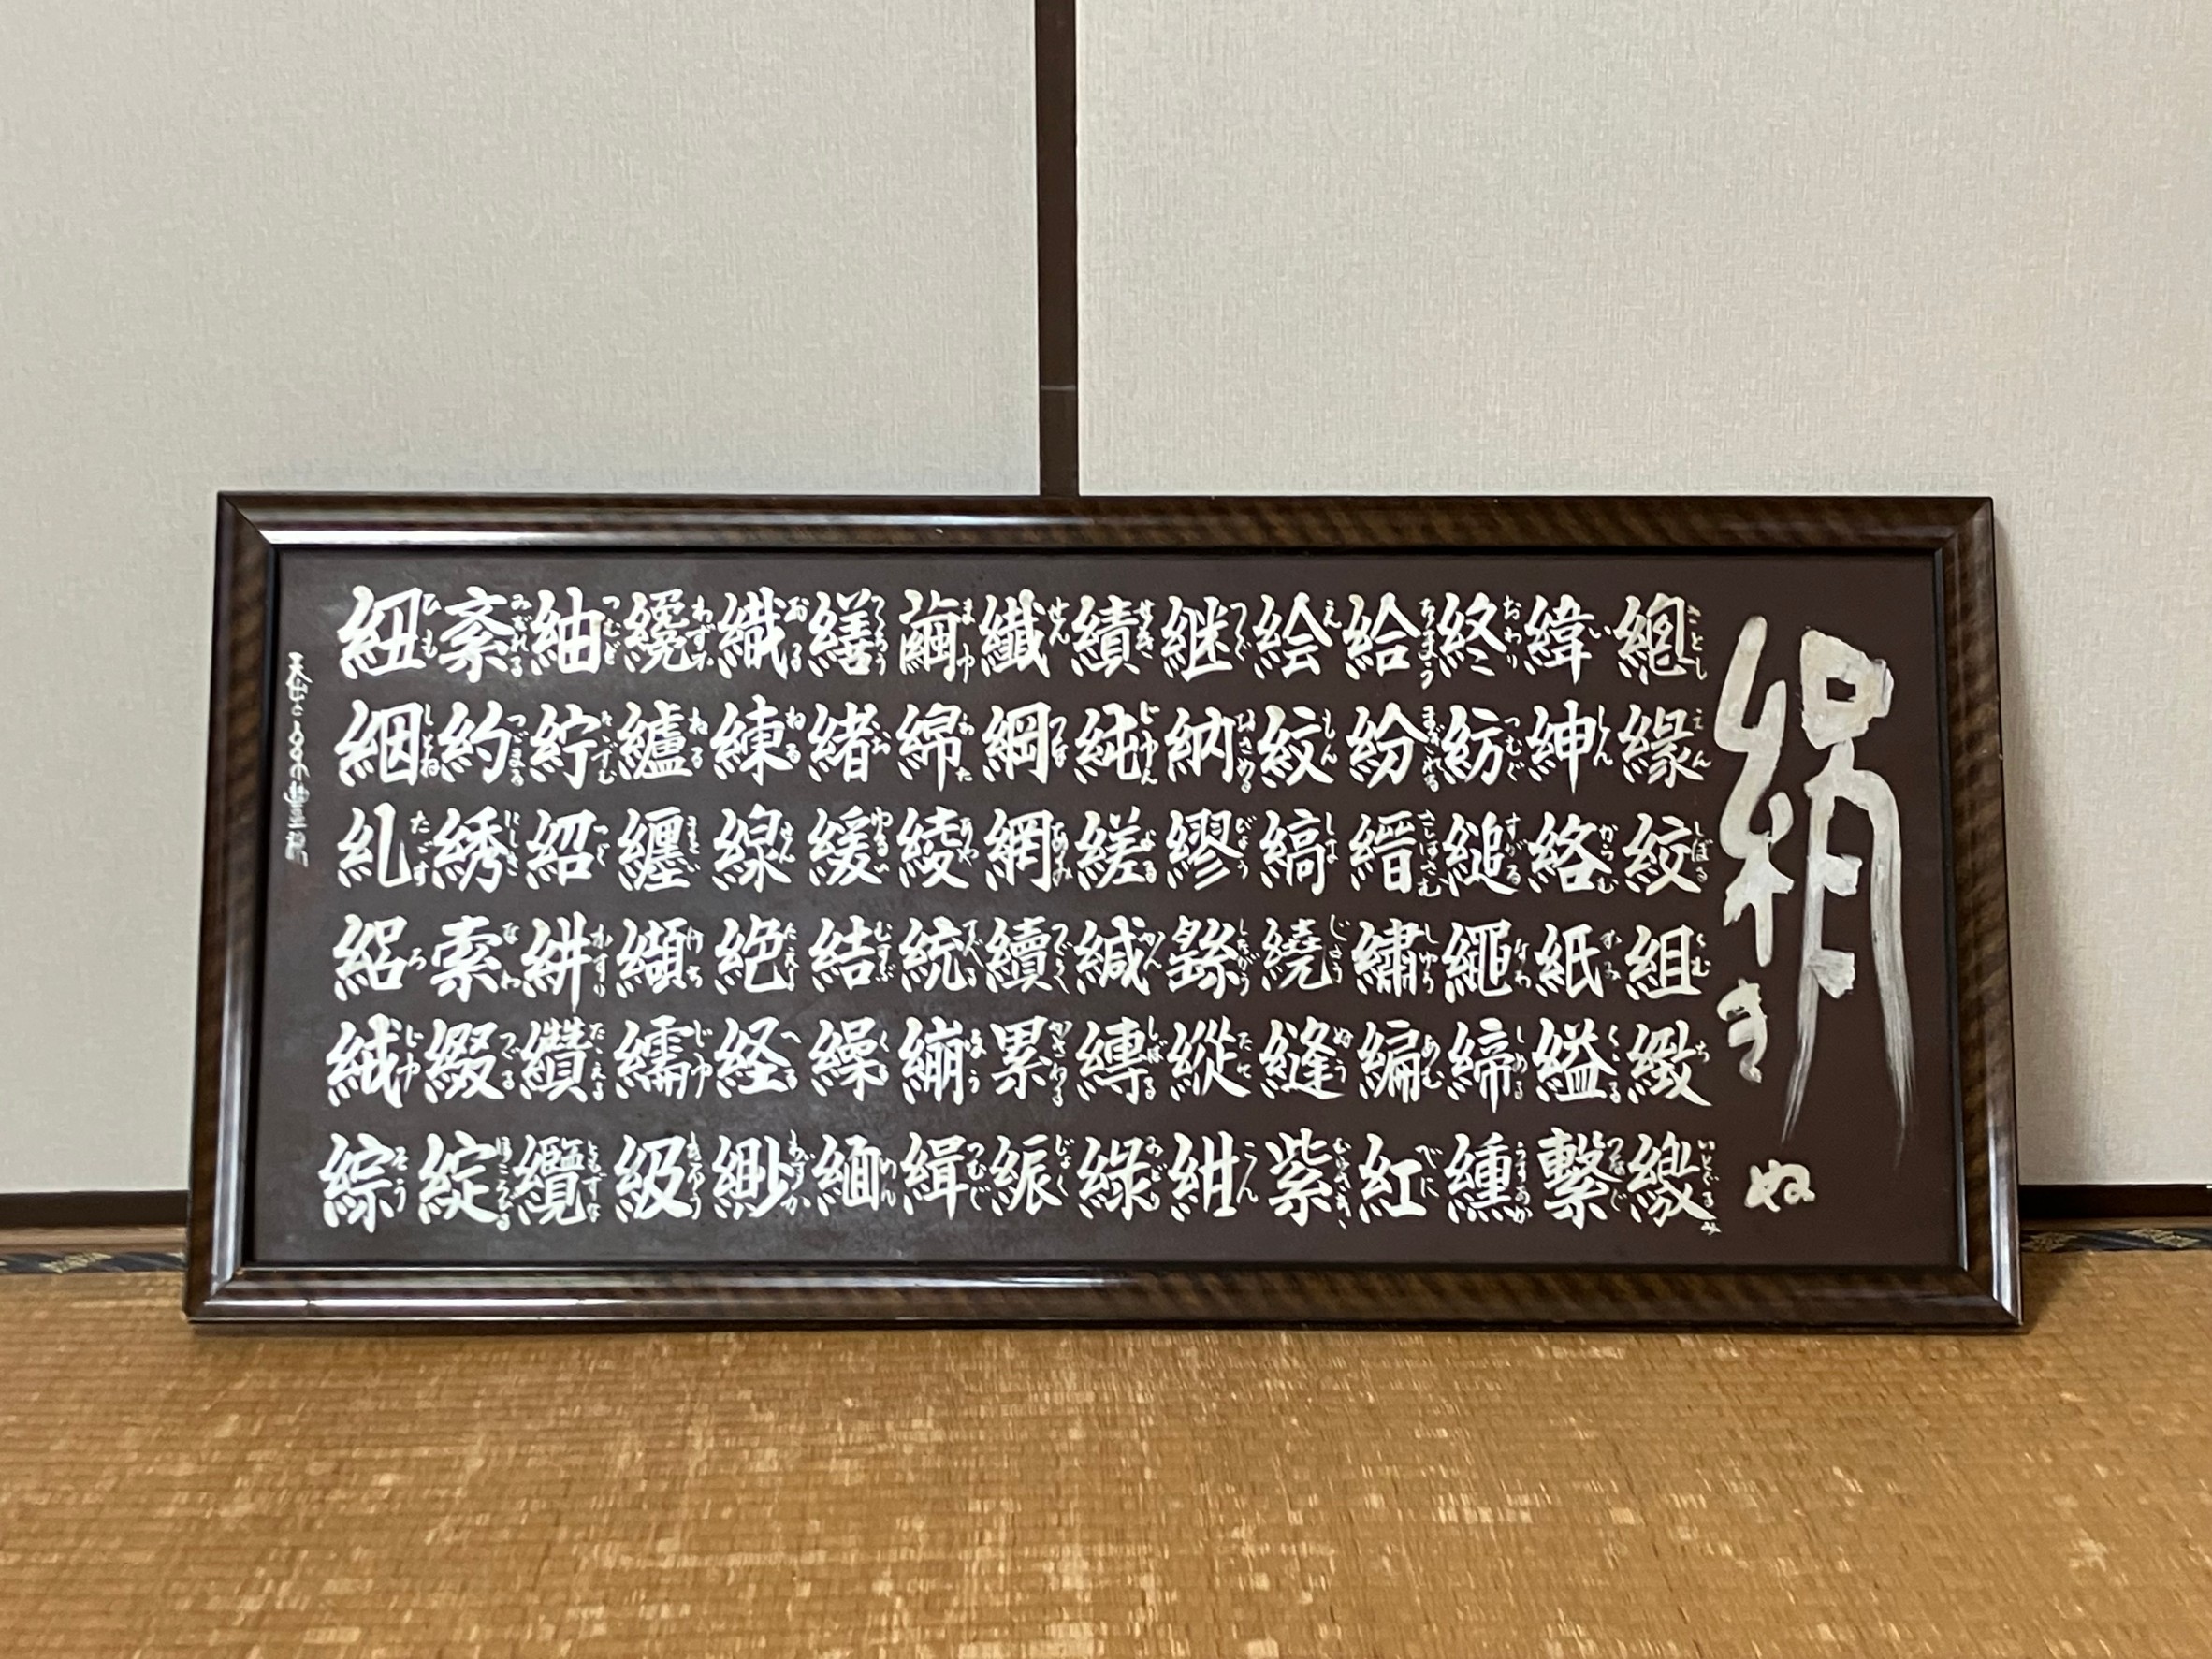 絹
きぬ
總 縁えん 絞しぼる 組くむ 緻ち 繳いとぐるみ
緯い 紳しん 絡からむ 紙かみ 縊くくる 繋つなぐ
終おわり 紡つむぐ 縋すがる 繩なわ 締しめる 纁うすあか
給たまう 紛まぎれる 縉さしはさむ 繡しゅう 編あむ 紅べに
絵え 紋もん 縞しま 繞じょう 縫ぬう 紫むらさき
継つぐ 納おさめる 繆びゅう 繇したがう 縦たて 紺こん
績せき 純じゅん 縒よる 緘かん 縛しばる 緑みどり
纖せん 綱つな 網あみ 續つづく 累かさねる
繭まゆ 綿わた 綾あや 統すべる 繃 緝つむぐ
繕つくろう 緒お 緩ゆるい 結むすぶ 繰くる 緬めん
織おる 練ねる 線せん 絶たえる 経へる 緲わずか
纔わずか 纑ねる 纏まとい 纈けち 繻じゅ 級きゅう
紬つむぎ 紵 紹つぐ 絣かすり 纘たたえる 纜ともづな
紊みだれる 約つづまる 綉にしき 索なわ 綴つづる 綻ほころびる
紐ひも 絪しとね 糺ただす 絽ろ 絨じゅう 綜そう